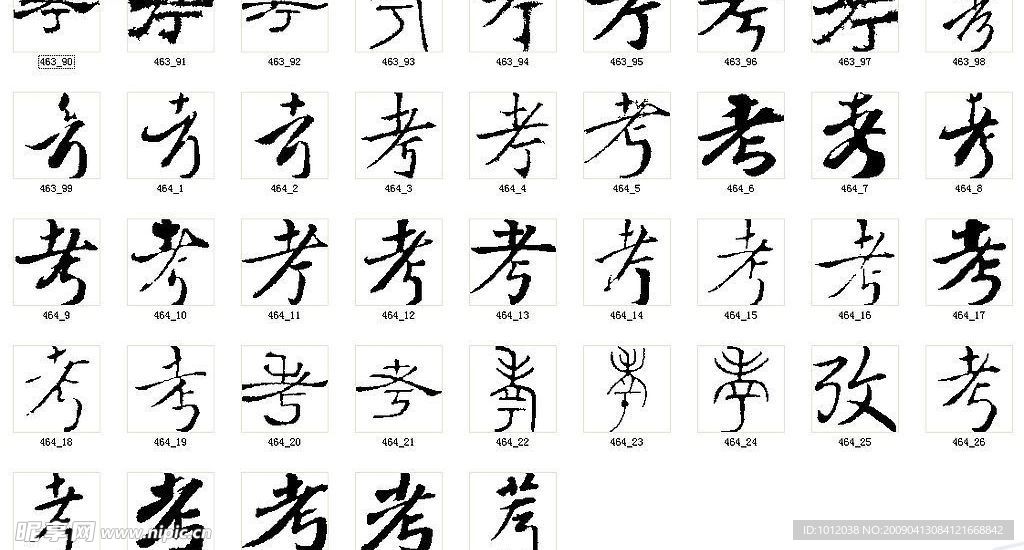 463_90 463_91 463_92 463_93 463_94 463_95 463_96 463_97 463_98
考 考 考 考 考 考
463_99 464_1 464_2 464_3 464_4 464_5 464_6 464_7 464_8
考 考 考 考 考 考 考 考 考
464_9 464_10 464_11 464_12 464_13 464_14 464_15 464_16 464_17
考 考 考 考 攷 考
464_18 464_19 464_20 464_21 464_22 464_23 464_24 464_25 464_26
考 考 考 考
昵享网 www.nipic.cn
ID:1012038 NO:20090413084121668842